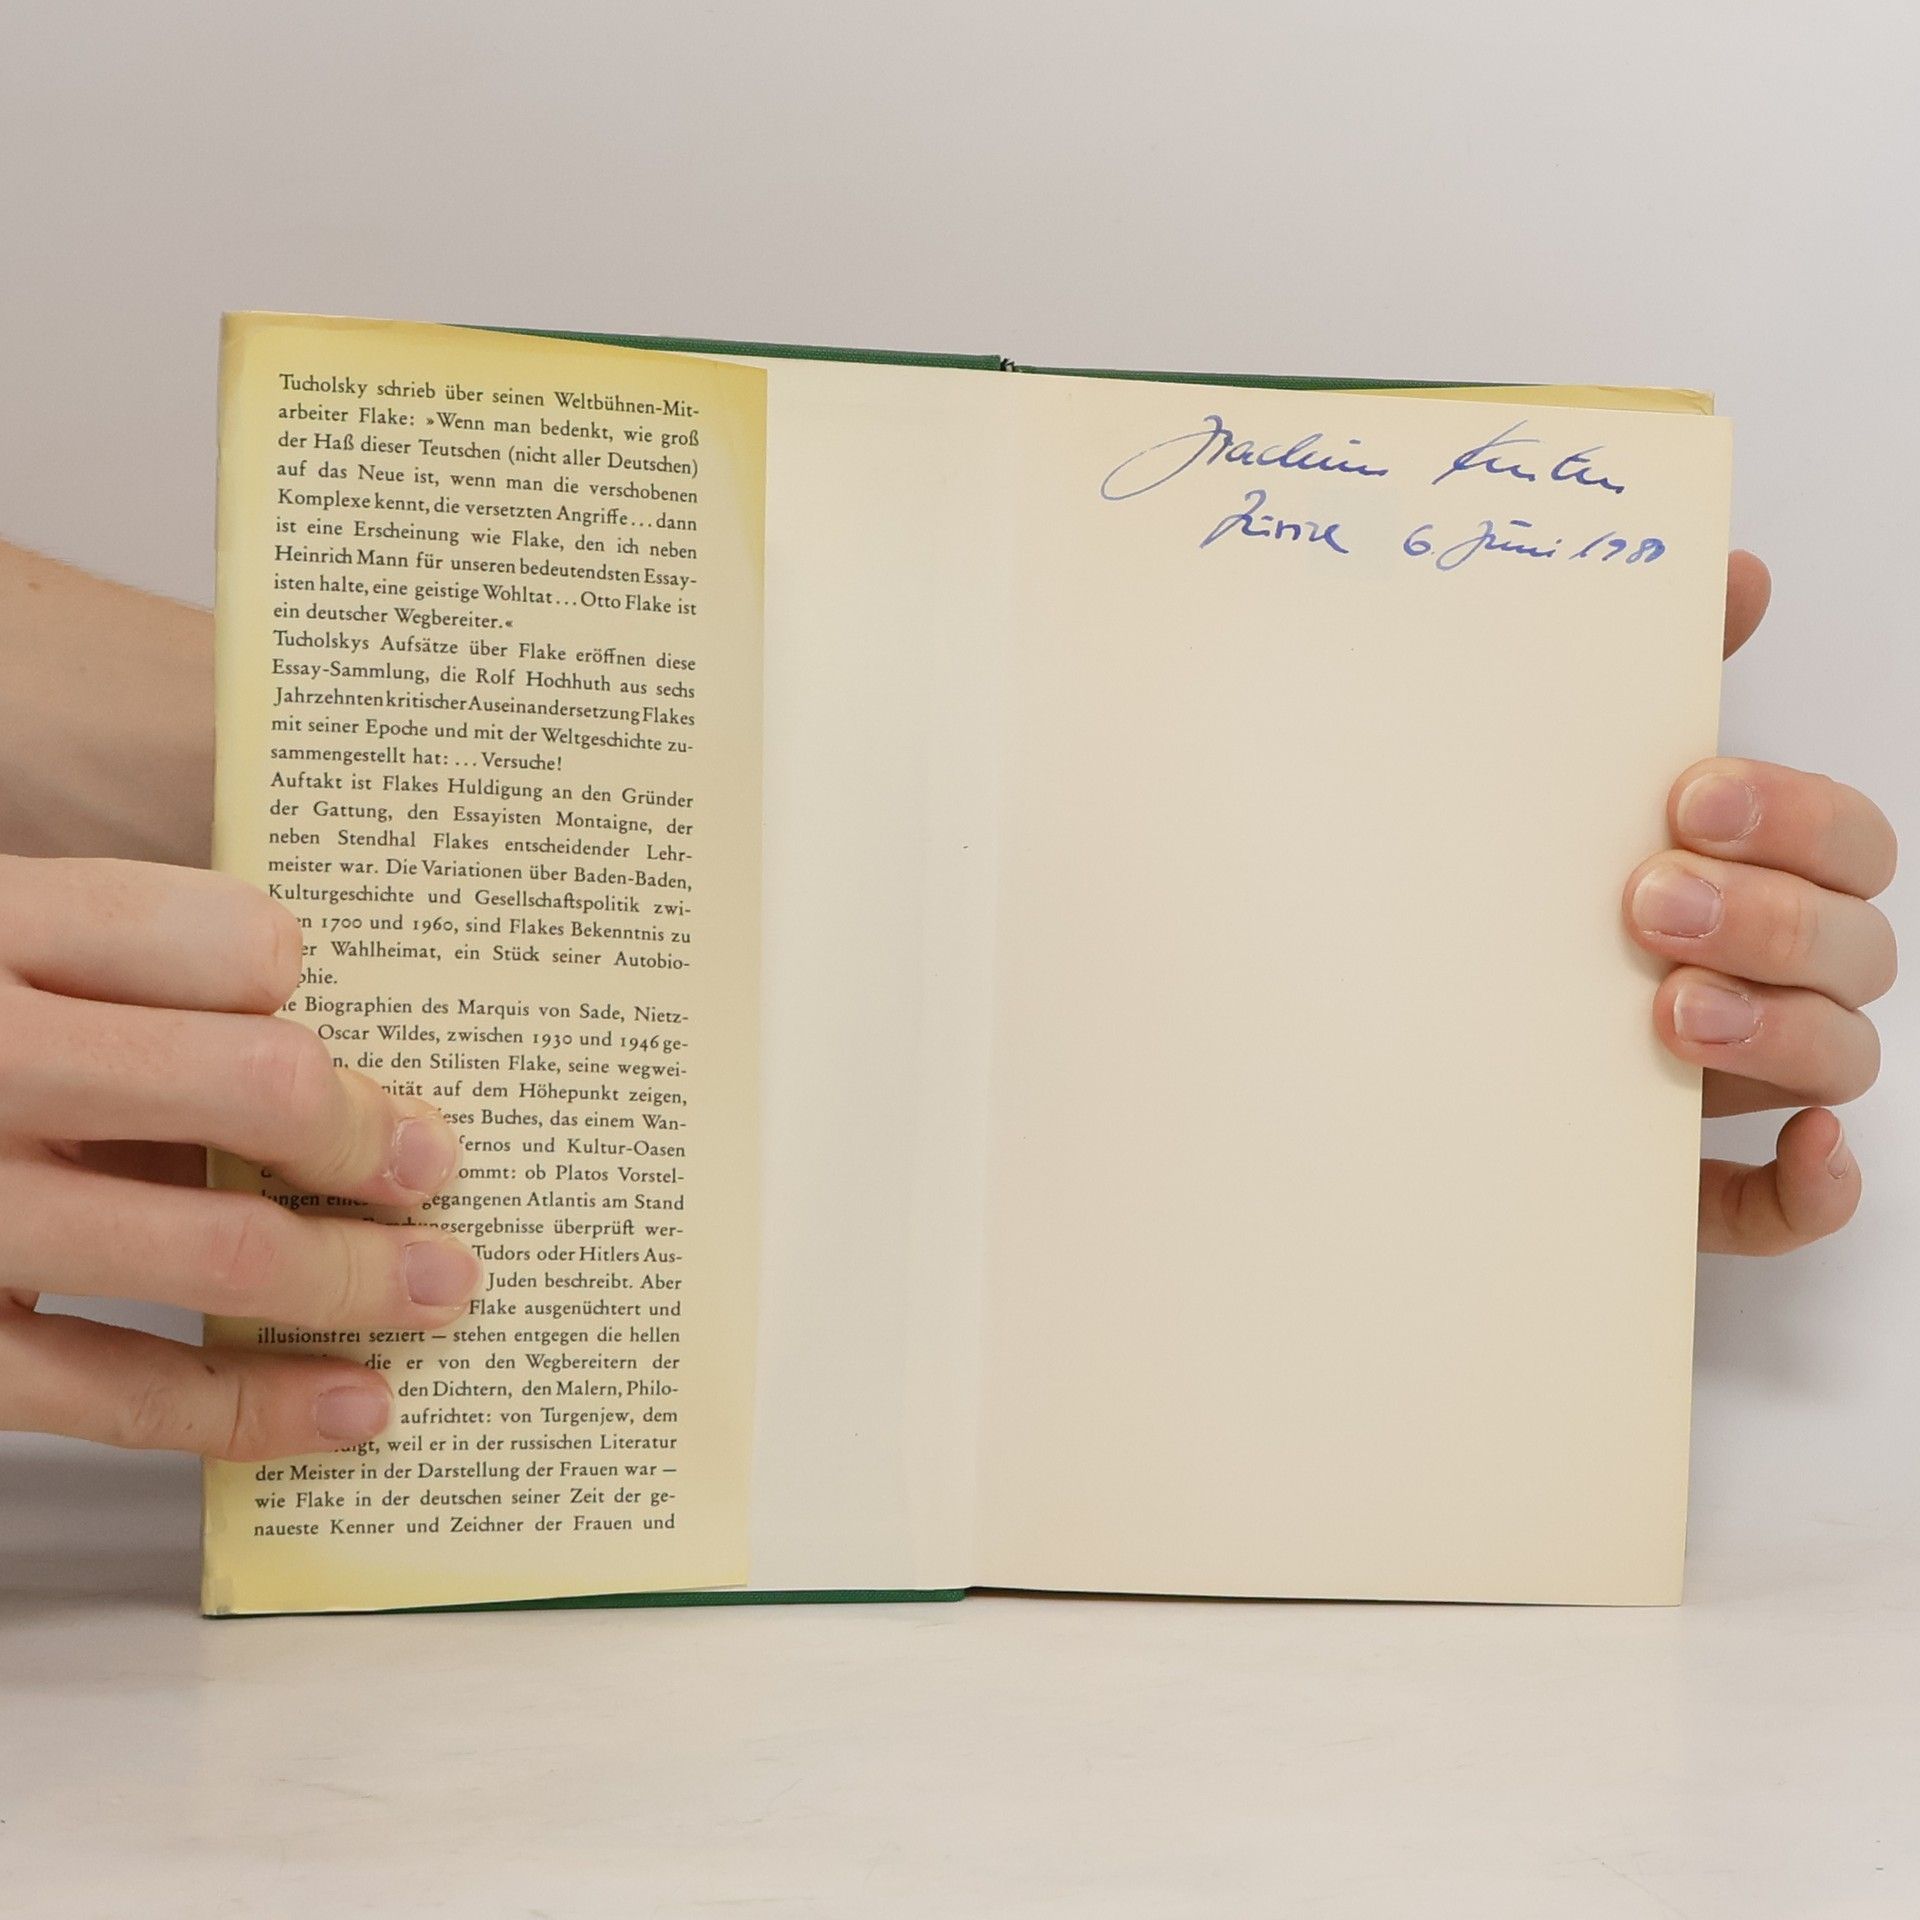 Tucholsky schrieb über seinen Weltbühnen-Mit-
arbeiter Flake: »Wenn man bedenkt, wie groß
der Haß dieser Teutschen (nicht aller Deutschen)
auf das Neue ist, wenn man die verschobenen
Komplexe kennt, die versetzten Angriffe...dann
ist eine Erscheinung wie Flake, den ich neben
Heinrich Mann für unseren bedeutendsten Essay-
isten halte, eine geistige Wohltat...Otto Flake ist
ein deutscher Wegbereiter.«
Tucholskys Aufsätze über Flake eröffnen diese
Essay-Sammlung, die Rolf Hochhuth aus sechs
Jahrzehnten kritischer Auseinandersetzung Flakes
mit seiner Epoche und mit der Weltgeschichte zu-
sammengestellt hat: ... Versuche!
Auftakt ist Flakes Huldigung an den Gründer
der Gattung, den Essayisten Montaigne, der
neben Stendhal Flakes entscheidender Lehr-
meister war. Die Variationen über Baden-Baden,
Kulturgeschichte und Gesellschaftspolitik zwi-
1700 und 1960, sind Flakes Bekenntnis zu
Wahlheimat, ein Stück seiner Autobio-
phie.
Biographien des Marquis von Sade, Nietz-
Oscar Wildes, zwischen 1930 und 1946 ge-
die den Stilisten Flake, seine wegwei-
auf dem Höhepunkt zeigen,
Buches, das einem Wan-
und Kultur-Oasen
ommt: ob Platos Vorstel-
gegangenen Atlantis am Stand
ergebnisse überprüft wer-
Tudors oder Hitlers Aus-
Juden beschreibt. Aber
Flake ausgenüchtert und
illusionsfrei seziert — stehen entgegen die hellen
die er von den Wegbereitern der
den Dichtern, den Malern, Philo-
aufrichtet: von Turgenjew, dem
weil er in der russischen Literatur
der Meister in der Darstellung der Frauen war —
wie Flake in der deutschen seiner Zeit der ge-
naueste Kenner und Zeichner der Frauen und
Joachim Kersten
6. Juni 1980